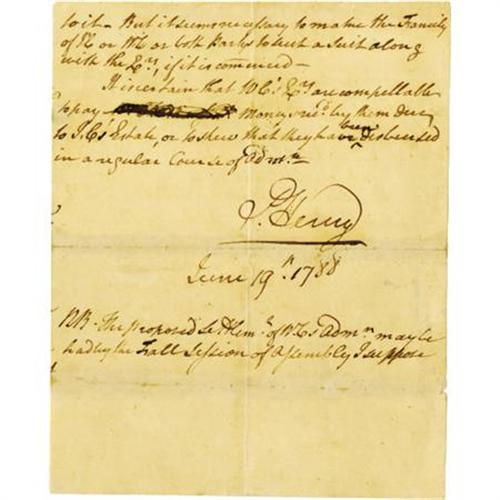 to it - But it seems necessary to make the Family
of R or Wl or both Parties to such a Suit along
with the Exrs, if it is comenced -
It is certain that W C's Exrs are compellable
to pay money recd. by them due
to J. C's Estate, or to shew that they have been disbursed
in a regular Course of Admn
P. Henry
June 19th. 1788
NB. The proposed Settlemt. of W Cs Admn may be
had by the Fall Session of Assembly I suppose